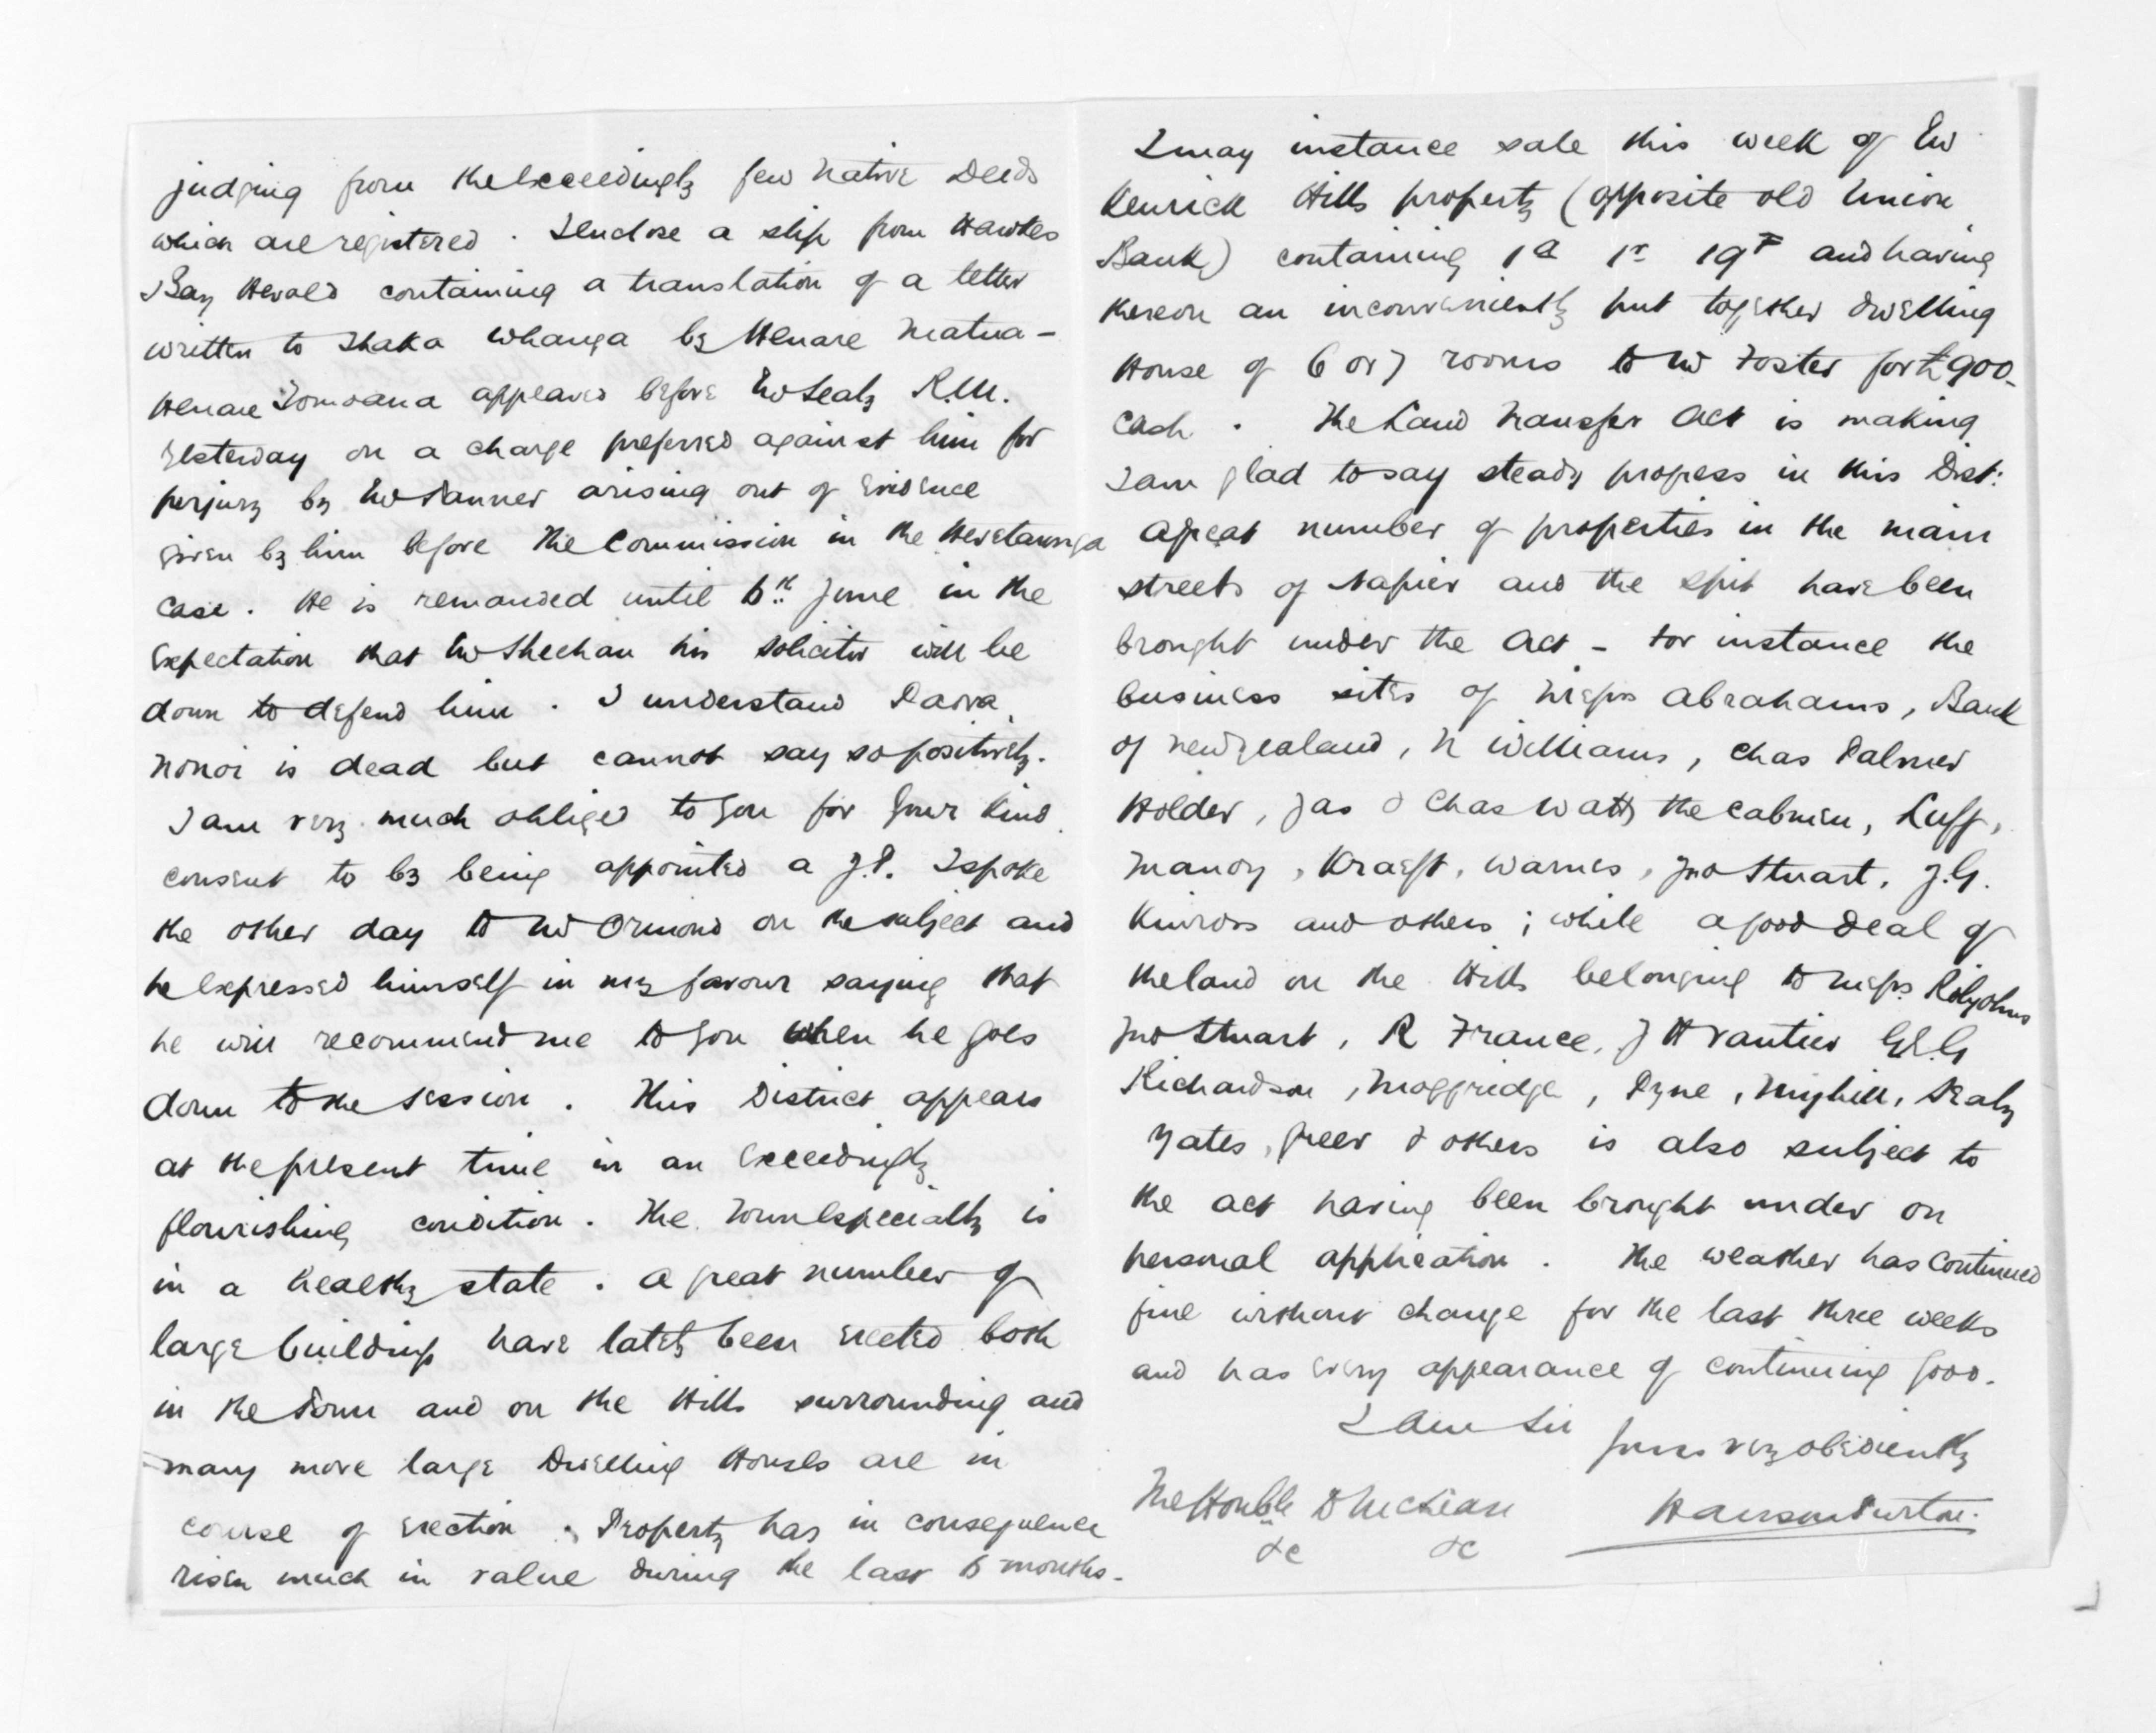 judging from the exceedingly few Native Deeds
which are registered. I enclose a slip from Hawkes
Bay Herald containing a translation of a letter
written to Ihaka Whanga by Henare Matua -
Henare Tomoana appeared before Mr Sealy R.M.
yesterday on a charge preferred against him for
perjury by Mr Tanner arising out of evidence
given by him before the Commission in the Heretaunga
case. He is remanded until 6th June in the
expectation that Mr Sheehan his solicitor will be
down to defend him. I understand
is dead but cannot say so positively.
I am very much obliged to you for your kind
consent to by being appointed a J.P. I spoke
the other day to Mr Ormond on the subject and
he expressed himself in my favour saying that
he will recommend me to you when he goes
down to the Session. This District appears
at the present time in an exceedingly
flourishing condition. The Town especially is
in a healthy state. A great number of
large buildings have lately been erected both
in the Town and on the Hills surrounding and
many more large Dwelling Houses are in
course of erection. Property has in consequence
risen much in value during the last 6 months.
I may instance sale this week of Mr
Kenrick Hills property (opposite old Union
Bank) containing 1a 1r 19p and having
thereon an inconveniently put together dwelling
House of 6 or 7 rooms to Mr Foster for £900-
cash. The Land Transfer Act is making
I am glad to say steady progress in this Dist:
A great number of properties in the main
streets of Napier and the Spit have been
brought under the Act - for instance the
business sites of Messrs Abrahams, Bank
of New Zealand, N Williams, Chas Palmer
Holder, Jas & Chas Watts the cabmen, Luff,
Manoy, Kraeft, Warnes, Jno Stuart, J.G.
Kinross and others; while a good deal of
the land on the Hills belonging to Messrs
Jno Stuart, R France, J H Vautier G.E.G
Richardson, Moggridge, Pyne, Myhill, Sealy
Yates, Greer & others is also subject to
the act having been brought under on
personal application. The weather has continued
fine without change for the last three weeks
and has every appearance of continuing good.
I am Sir
yours very obediently
The Honble D McLean
Hanson Turton.
&c &c